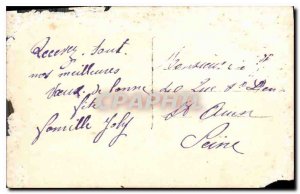 Recevez tout
nos meilleures
vœux de bonne
fête
famille Joly
Monsieur
20 Rue St Den
St Ouen
Seine